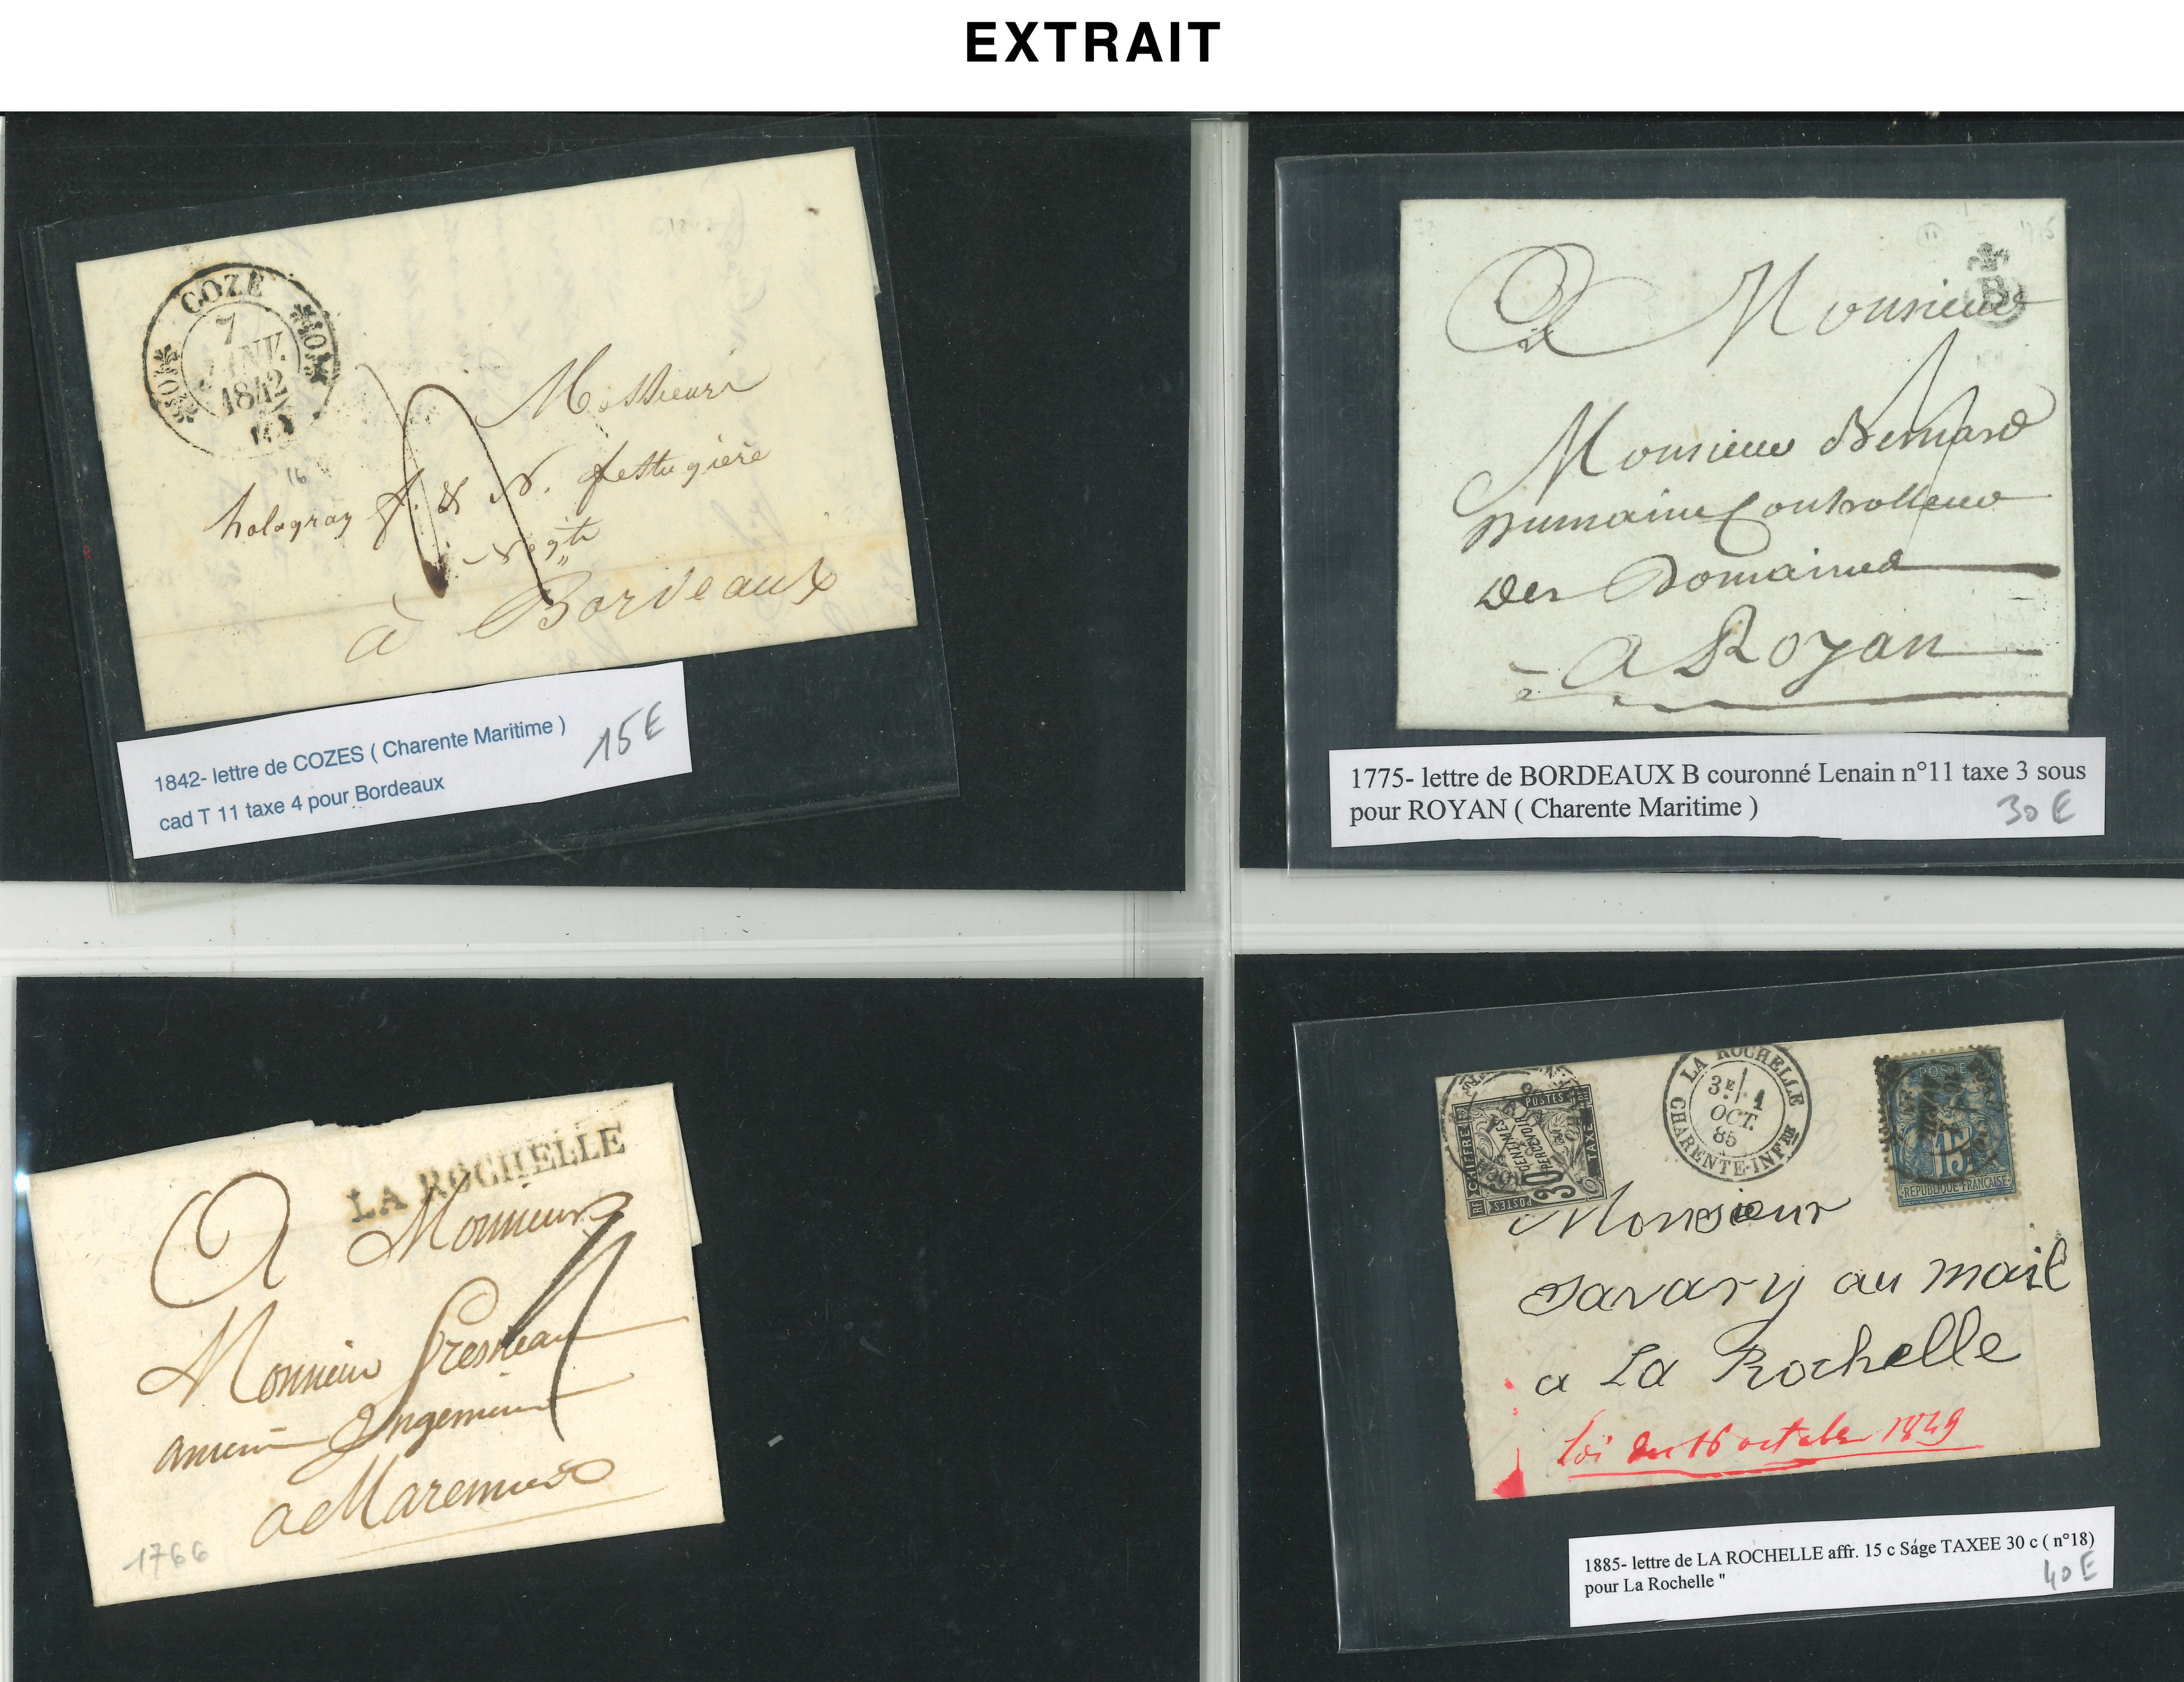 EXTRAIT
COZE
7
JANV.
1842
(16)
16
Messieurs
holagray f. & N. festugière
Negts
à Bordeaux
1842- lettre de COZES ( Charente Maritime )
cad T 11 taxe 4 pour Bordeaux
15E
1775
11
B
A Monsieur
Monsieur Bernard
Dumaine Controlleur
Des Domaines
a Royan
1775- lettre de BORDEAUX B couronné Lenain n°11 taxe 3 sous
pour ROYAN ( Charente Maritime )
30 E
LA ROCHELLE
A Monsieur
Monsieur Fresneau
ancien Ingenieur
a Marennes
1766
CHIFFRE
POSTES
TAXE
POSTES
RF
30
CENTIMES
A PERCEVOIR
LA ROCHELLE
3E/ 1
OCT.
85
CHARENTE-INFRE
POSTE
15
REPUBLIQUE FRANCAISE
Monsieur
Savary au mail
a La Rochelle
Loi du 16 octobre 1849
1885- lettre de LA ROCHELLE affr. 15 c Sage TAXEE 30 c ( n°18)
pour La Rochelle "
40 E